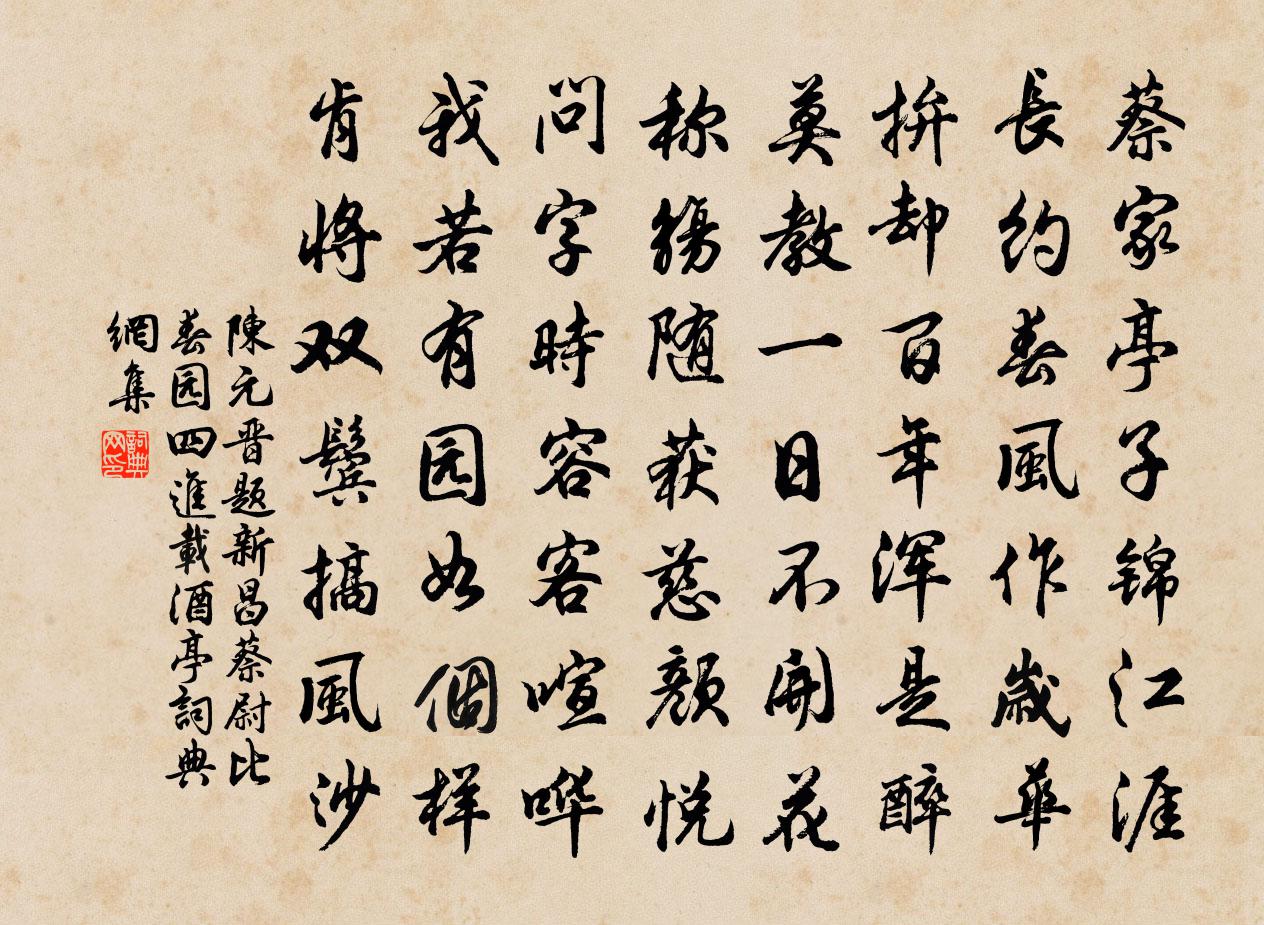 蔡家亭子锦江涯
長约春風作歲華
拚却百年浑是醉
莫教一日不開花
称觴随获慈颜悦
問字時容客喧哗
我若有园如個样
肯将双鬓搞風沙
陳元晋题新昌蔡尉比
春园四進載酒亭詞典
網集
詞典网印